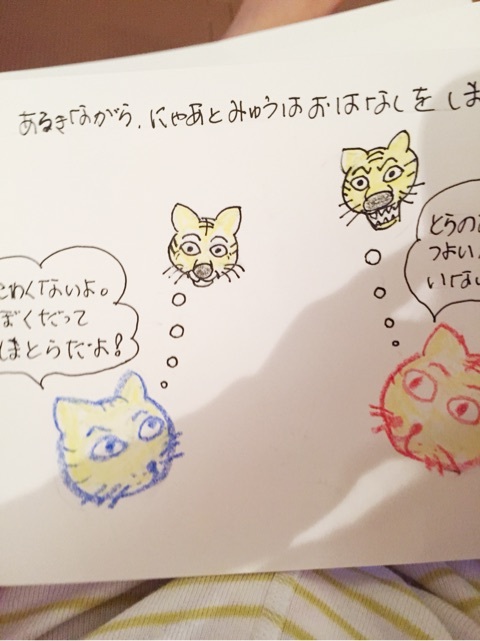 あるきながら、にゃあとみゅうはおはなしをしま
こわくないよ。
ぼくだって
まとらだよ!
とらの
つよい
いない